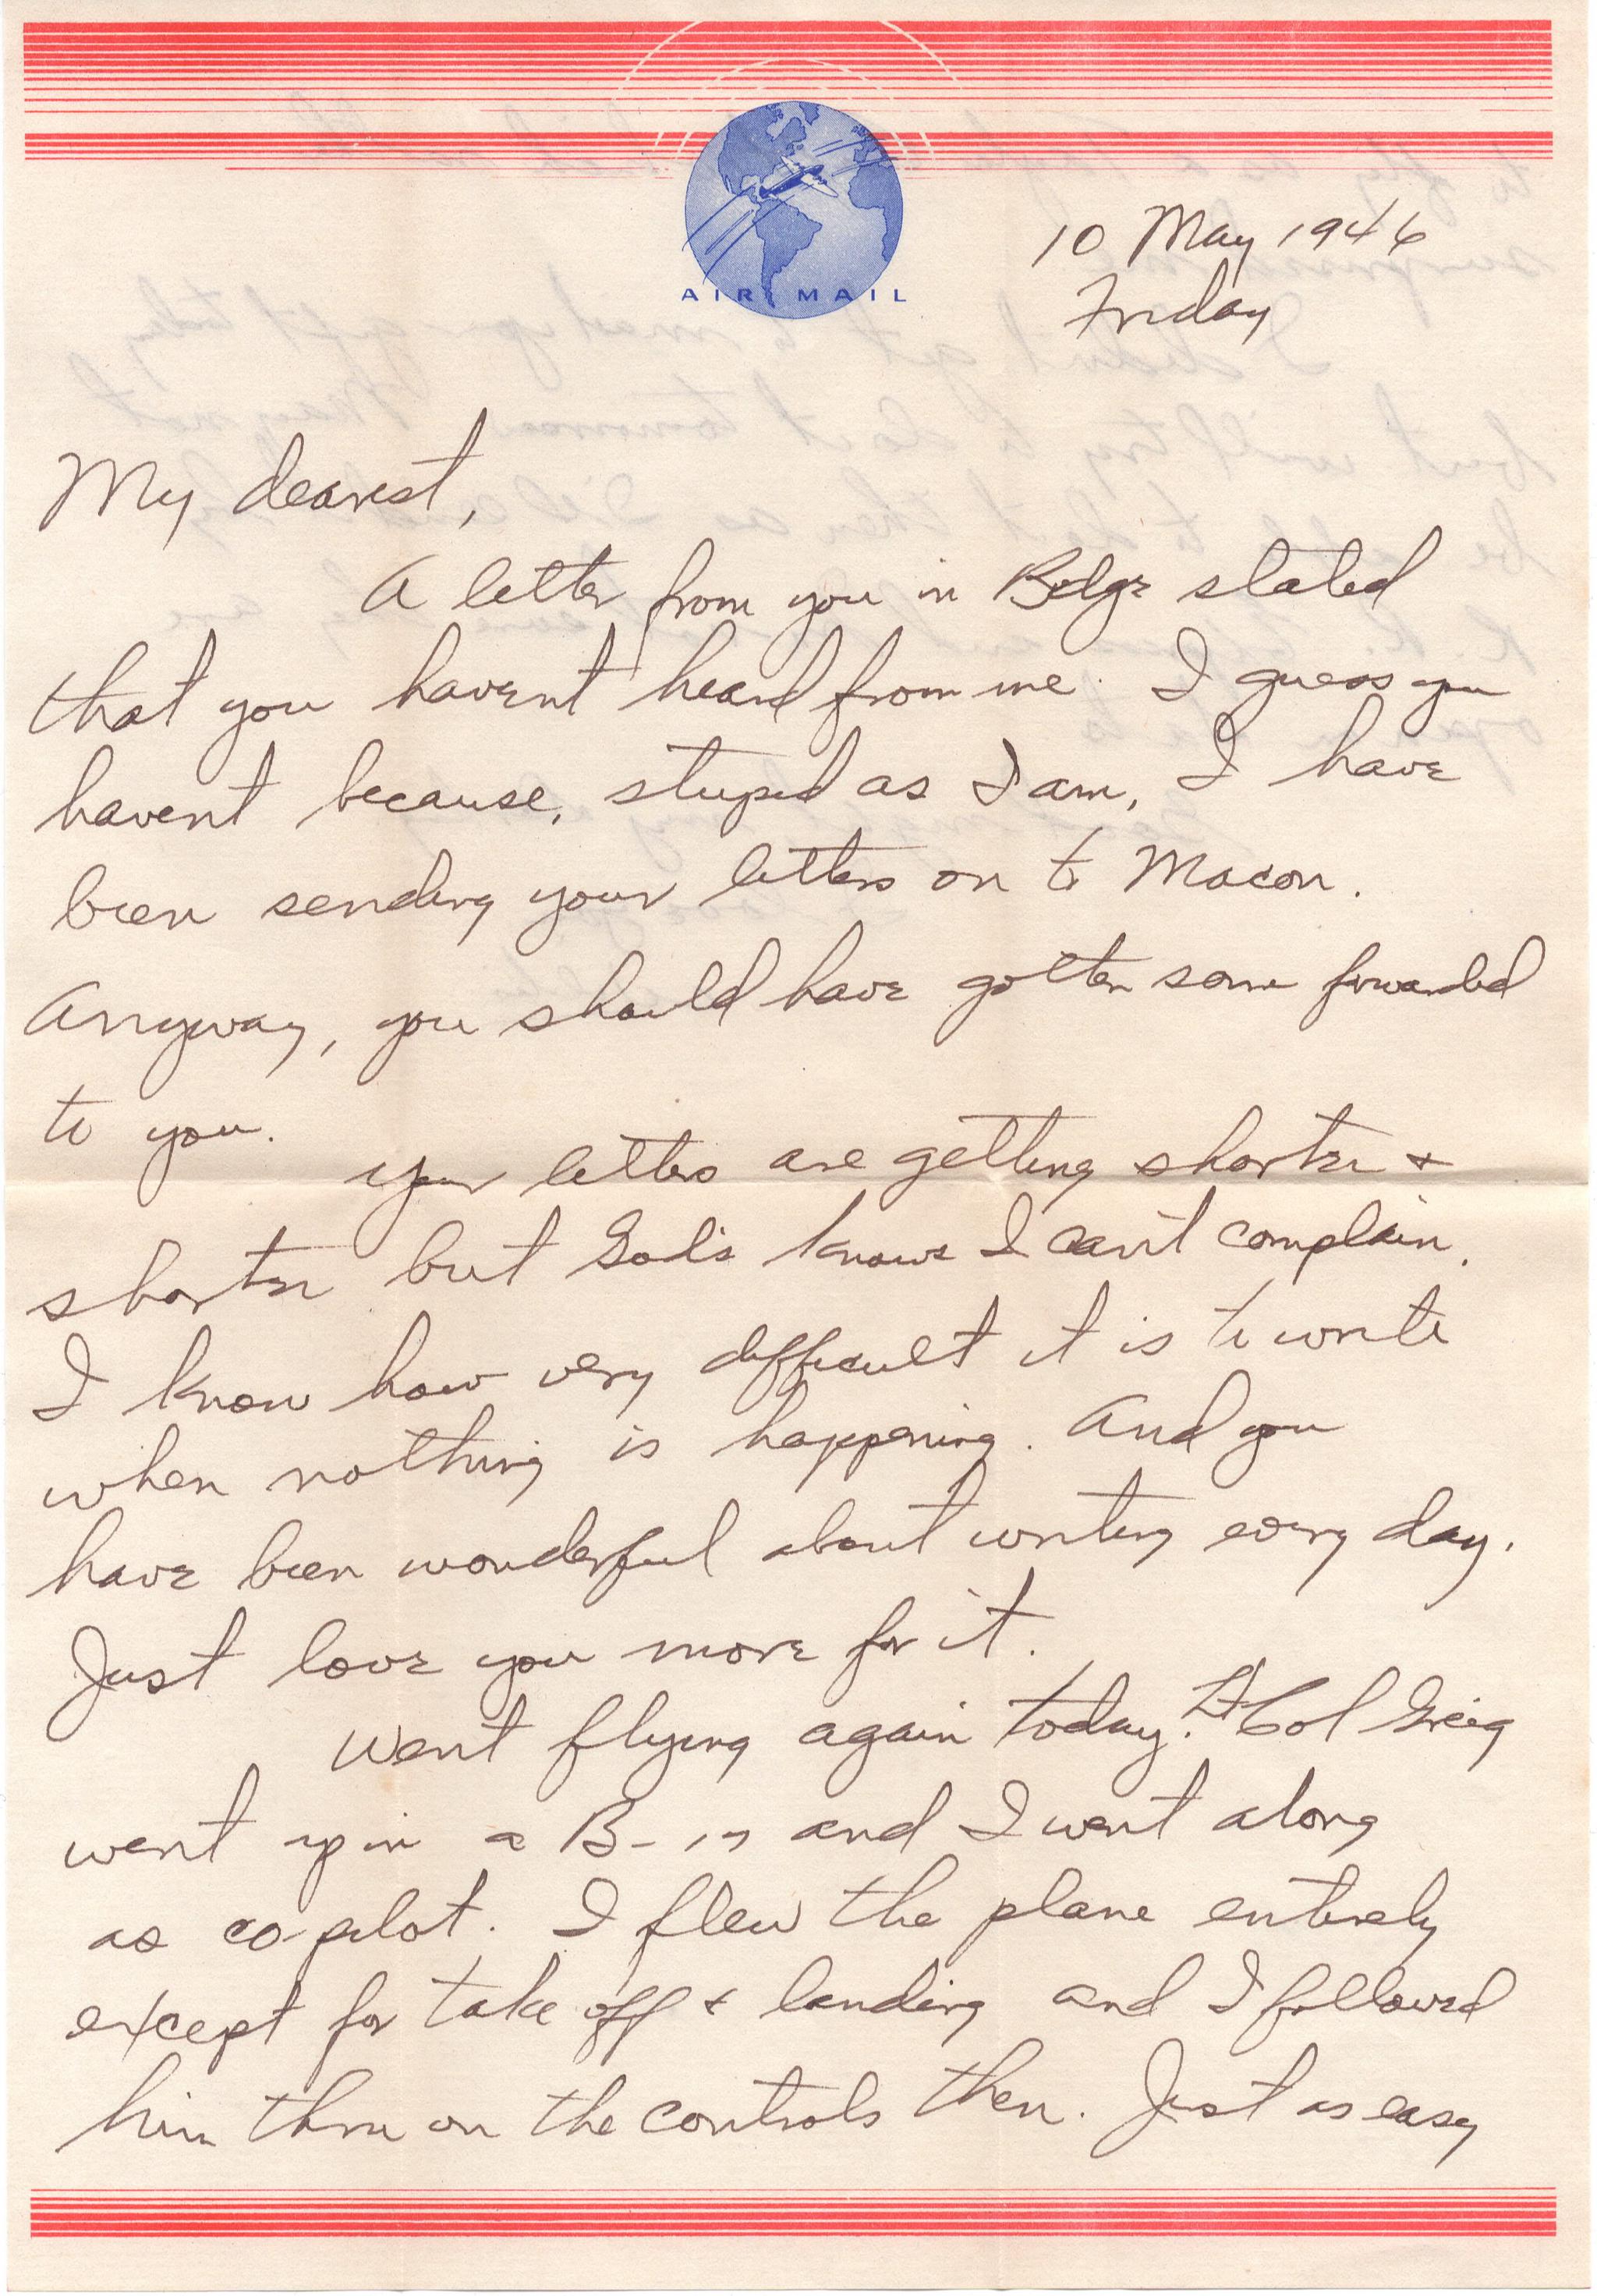 AIR MAIL
10 May 1946
Friday
My dearest,
A letter from you in Bldgs stated
that you havent heard from me. I guess you
havent because, stupid as I am, I have
been sending your letters on to Macon.
Anyway, you should have gotten some forwarded
to you.
Your letters are getting shorter &
shorter but God's knows I can't complain.
I know how very difficult it is to write
when nothing is happening. And you
have been wonderful about writing every day.
Just love you more for it.
Went flying again today. Lt Col Greig
went up in a B-17 and I went along
as co-pilot. I flew the plane entirely
except for take off & landing and I followed
him thru on the controls then. Just as easy